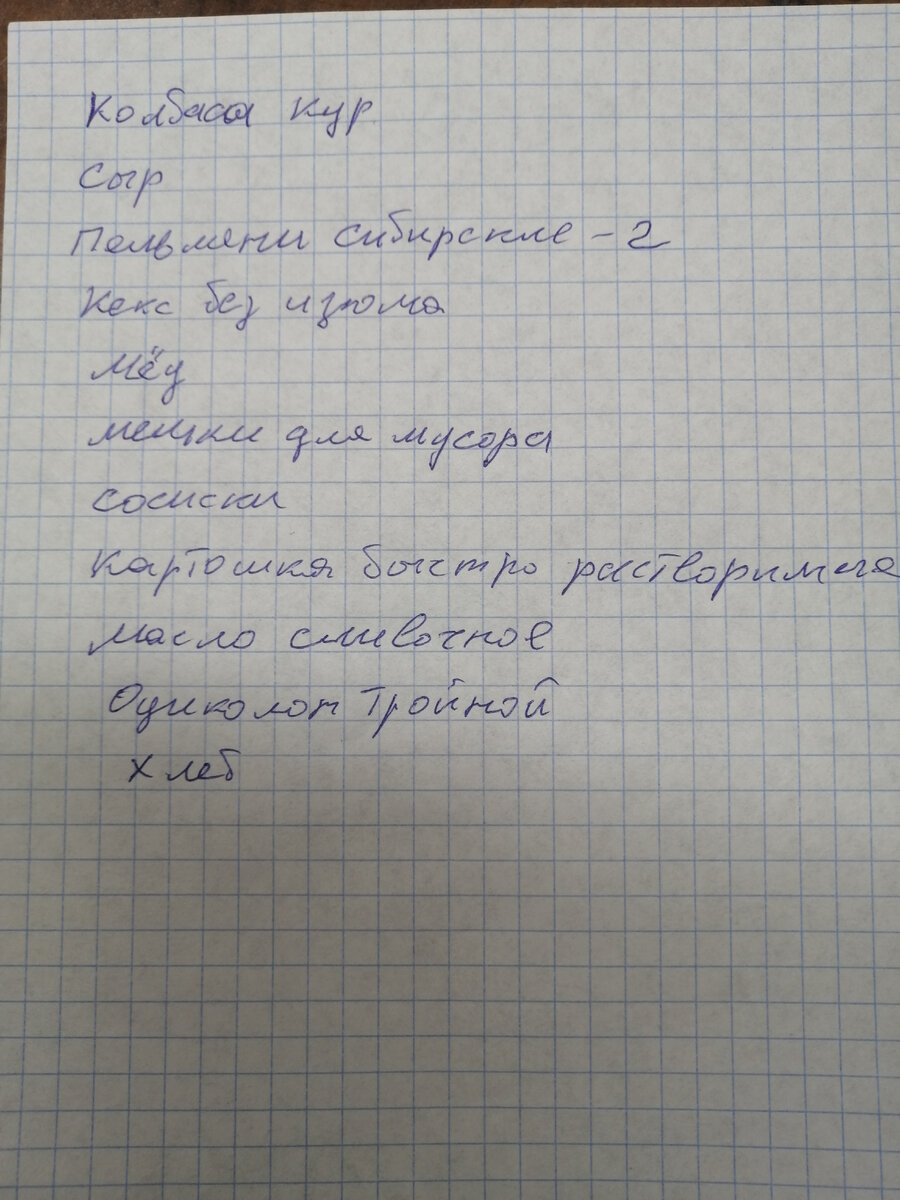 Колбаса кур
Сыр
Пельмени сибирские - 2
Кекс без изюма
Мёд
мешки для мусора
сосиски
картошка быстро растворимая
масло сливочное
Одиколон Тройной
хлеб